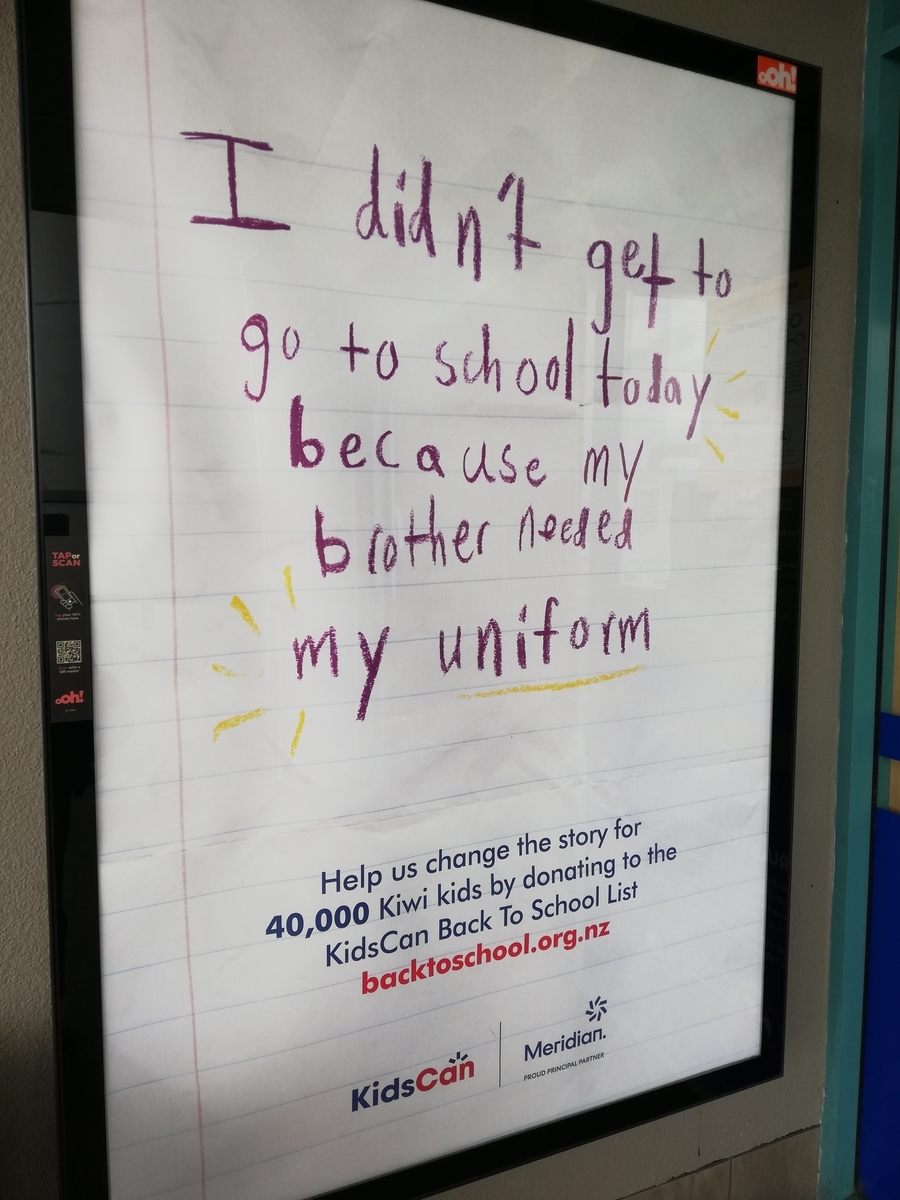 ooh!
I didn't get to
go to school today
because my
brother needed
my uniform
TAP or
SCAN
ooh!
Help us change the story for
40,000 Kiwi kids by donating to the
KidsCan Back To School List
backtoschool.org.nz
KidsCan
Meridian.
PROUD PRINCIPAL PARTNER